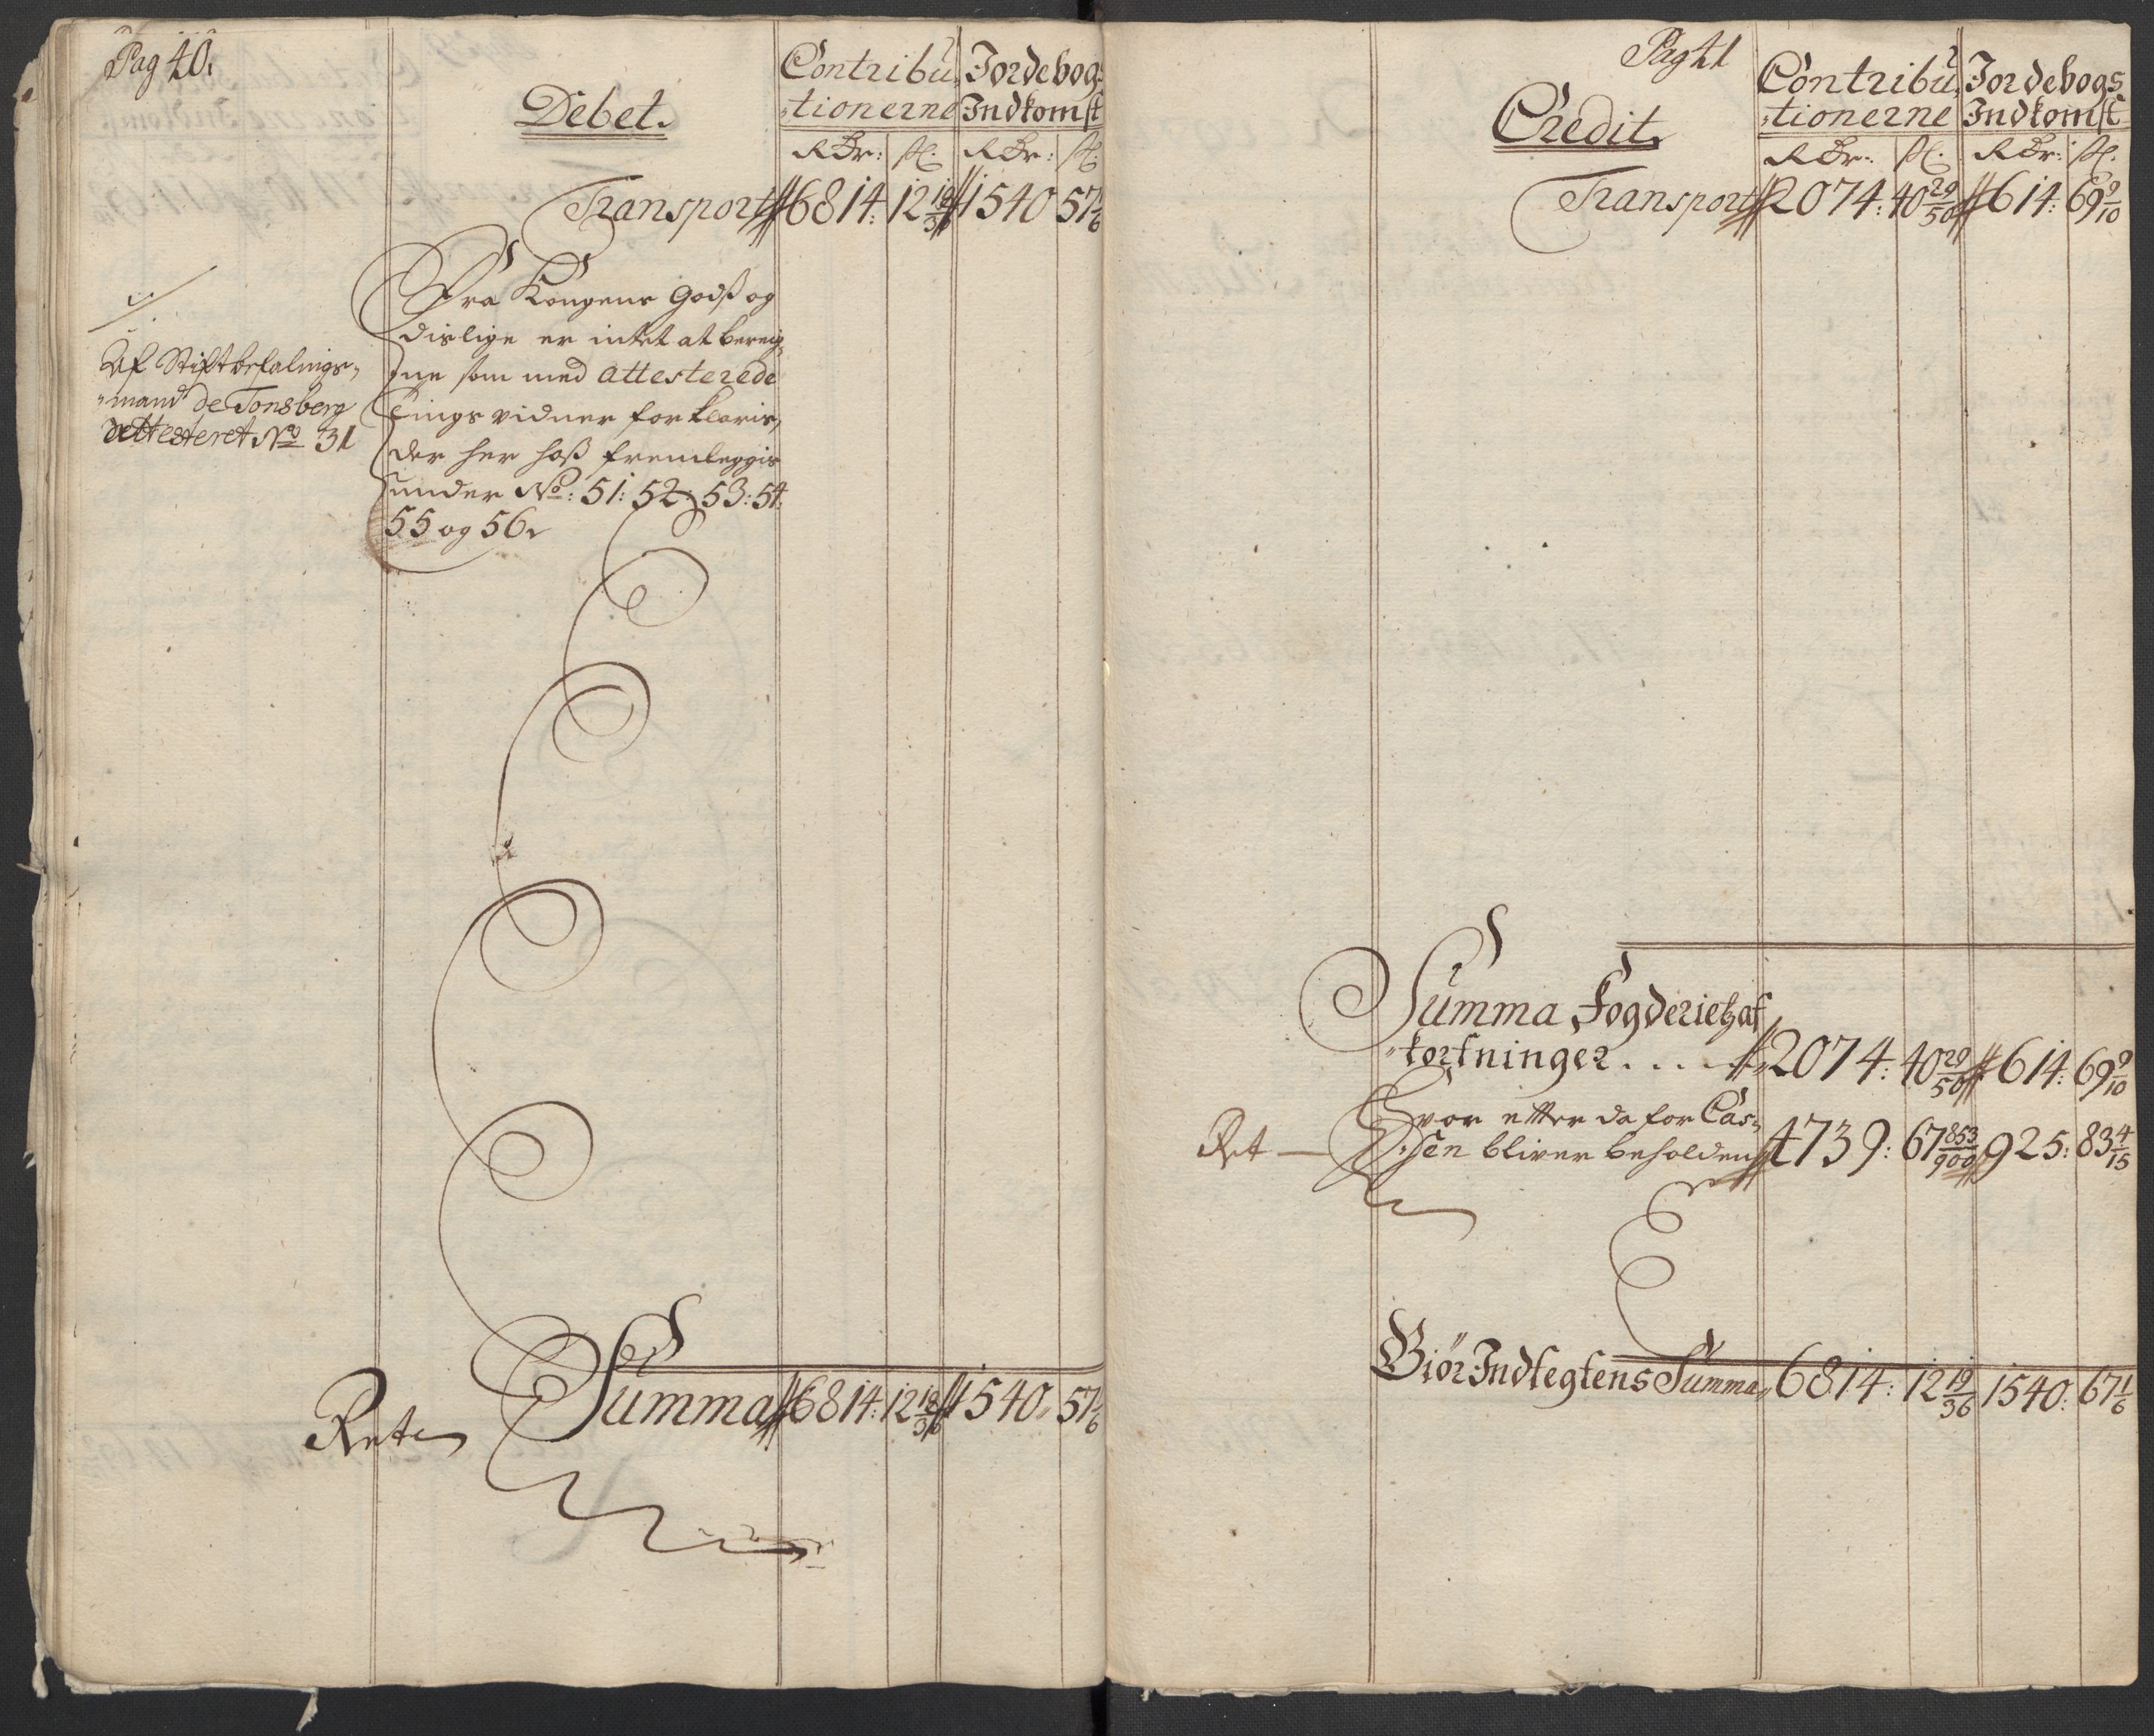 Pag 40.
Debet.
Contribu-
tionerne
Jordebogs
Indkomst
Rdr: ß. Rdr: ß.
Transport 6814: 12 19/36 1540 57 1/6
Fra Kongens Godß og
dislige er intet at bereig,
ne som med attesterede
tings vidner forklaris,
der her hoß fremleggis
under No: 51: 52: 53: 54:
55 og 56.
Af Stiftbefalings-
mand de Tonsberg
attesteret No 31
Summa 6814: 12 19/36 1540 57 1/6
Ret
Pag 41
Credit.
Contribu-
tionerne
Jordebogs
Indkomst
Rdr: ß. Rdr: ß.
Transport 2074: 40 29/50 614: 69 9/10
Summa Fogderietz af
kortninger . . . . 2074: 40 29/50 614: 69 9/10
Hvor efter da for Cas-
sen bliver beholden 4739: 67 853/900 925: 83 4/15
Ret
Giör Indtegtens Summa 6814: 12 19/36 1540: 67 1/6